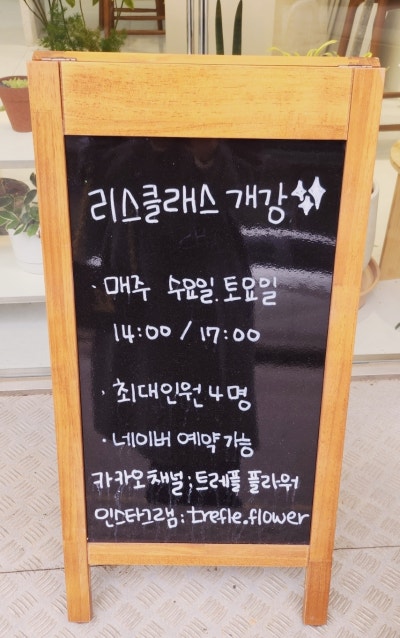 리스클래스 개강
· 매주 수요일.토요일
14:00 / 17:00
· 최대인원 4명
· 네이버 예약가능
카카오채널 ; 트레플 플라워
인스타그램 ; trefle.flower